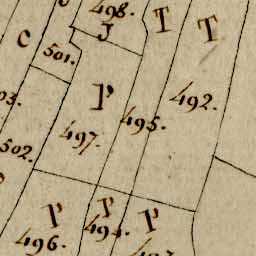 498.
J
T
T
C
501.
P
492.
495.
497.
502.
P
P
P
494.
496.